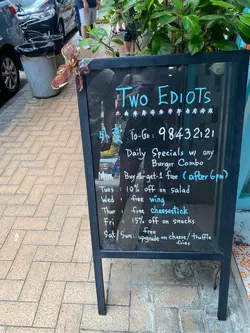 Two EDIOTS
To-Go: 98432121
Daily Specials w/ any
Burger Combo
Mon: Buy-1-get-1 free (after 6pm)
Tues: 10% off on salad
Wed: free wing
Thur: free cheesestick
Fri: 15% off on snacks
Sat/Sun: free
upgrade on cheese/truffle
fries